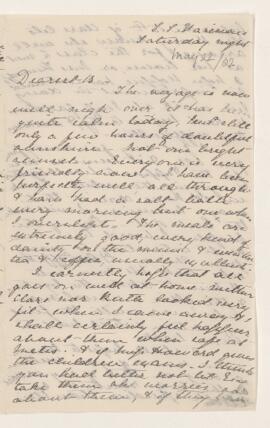 S.S. Harrison
Saturday night
May 22/82
Dearest B.
The voyage is now
well nigh over it has been
quite calm today, but still
only a few hours of doubtful
sunshine not one bright
sunset. Everyone is very
friendly now. I have been
perfectly well all through
& have had a salt bath
every morning but one when
I overslept. The meals are
extremely good, every kind of
dainty for the menu &
tea & coffee usually excellent.
I earnestly hope that all
goes on well at home neither
Clare nor Ruth looked very
fit when I came away & I
shall certainly feel happier
about them when safe at
. If Mrs. Howard
the children I think
you had better not let
take them she worries
about them, & if they